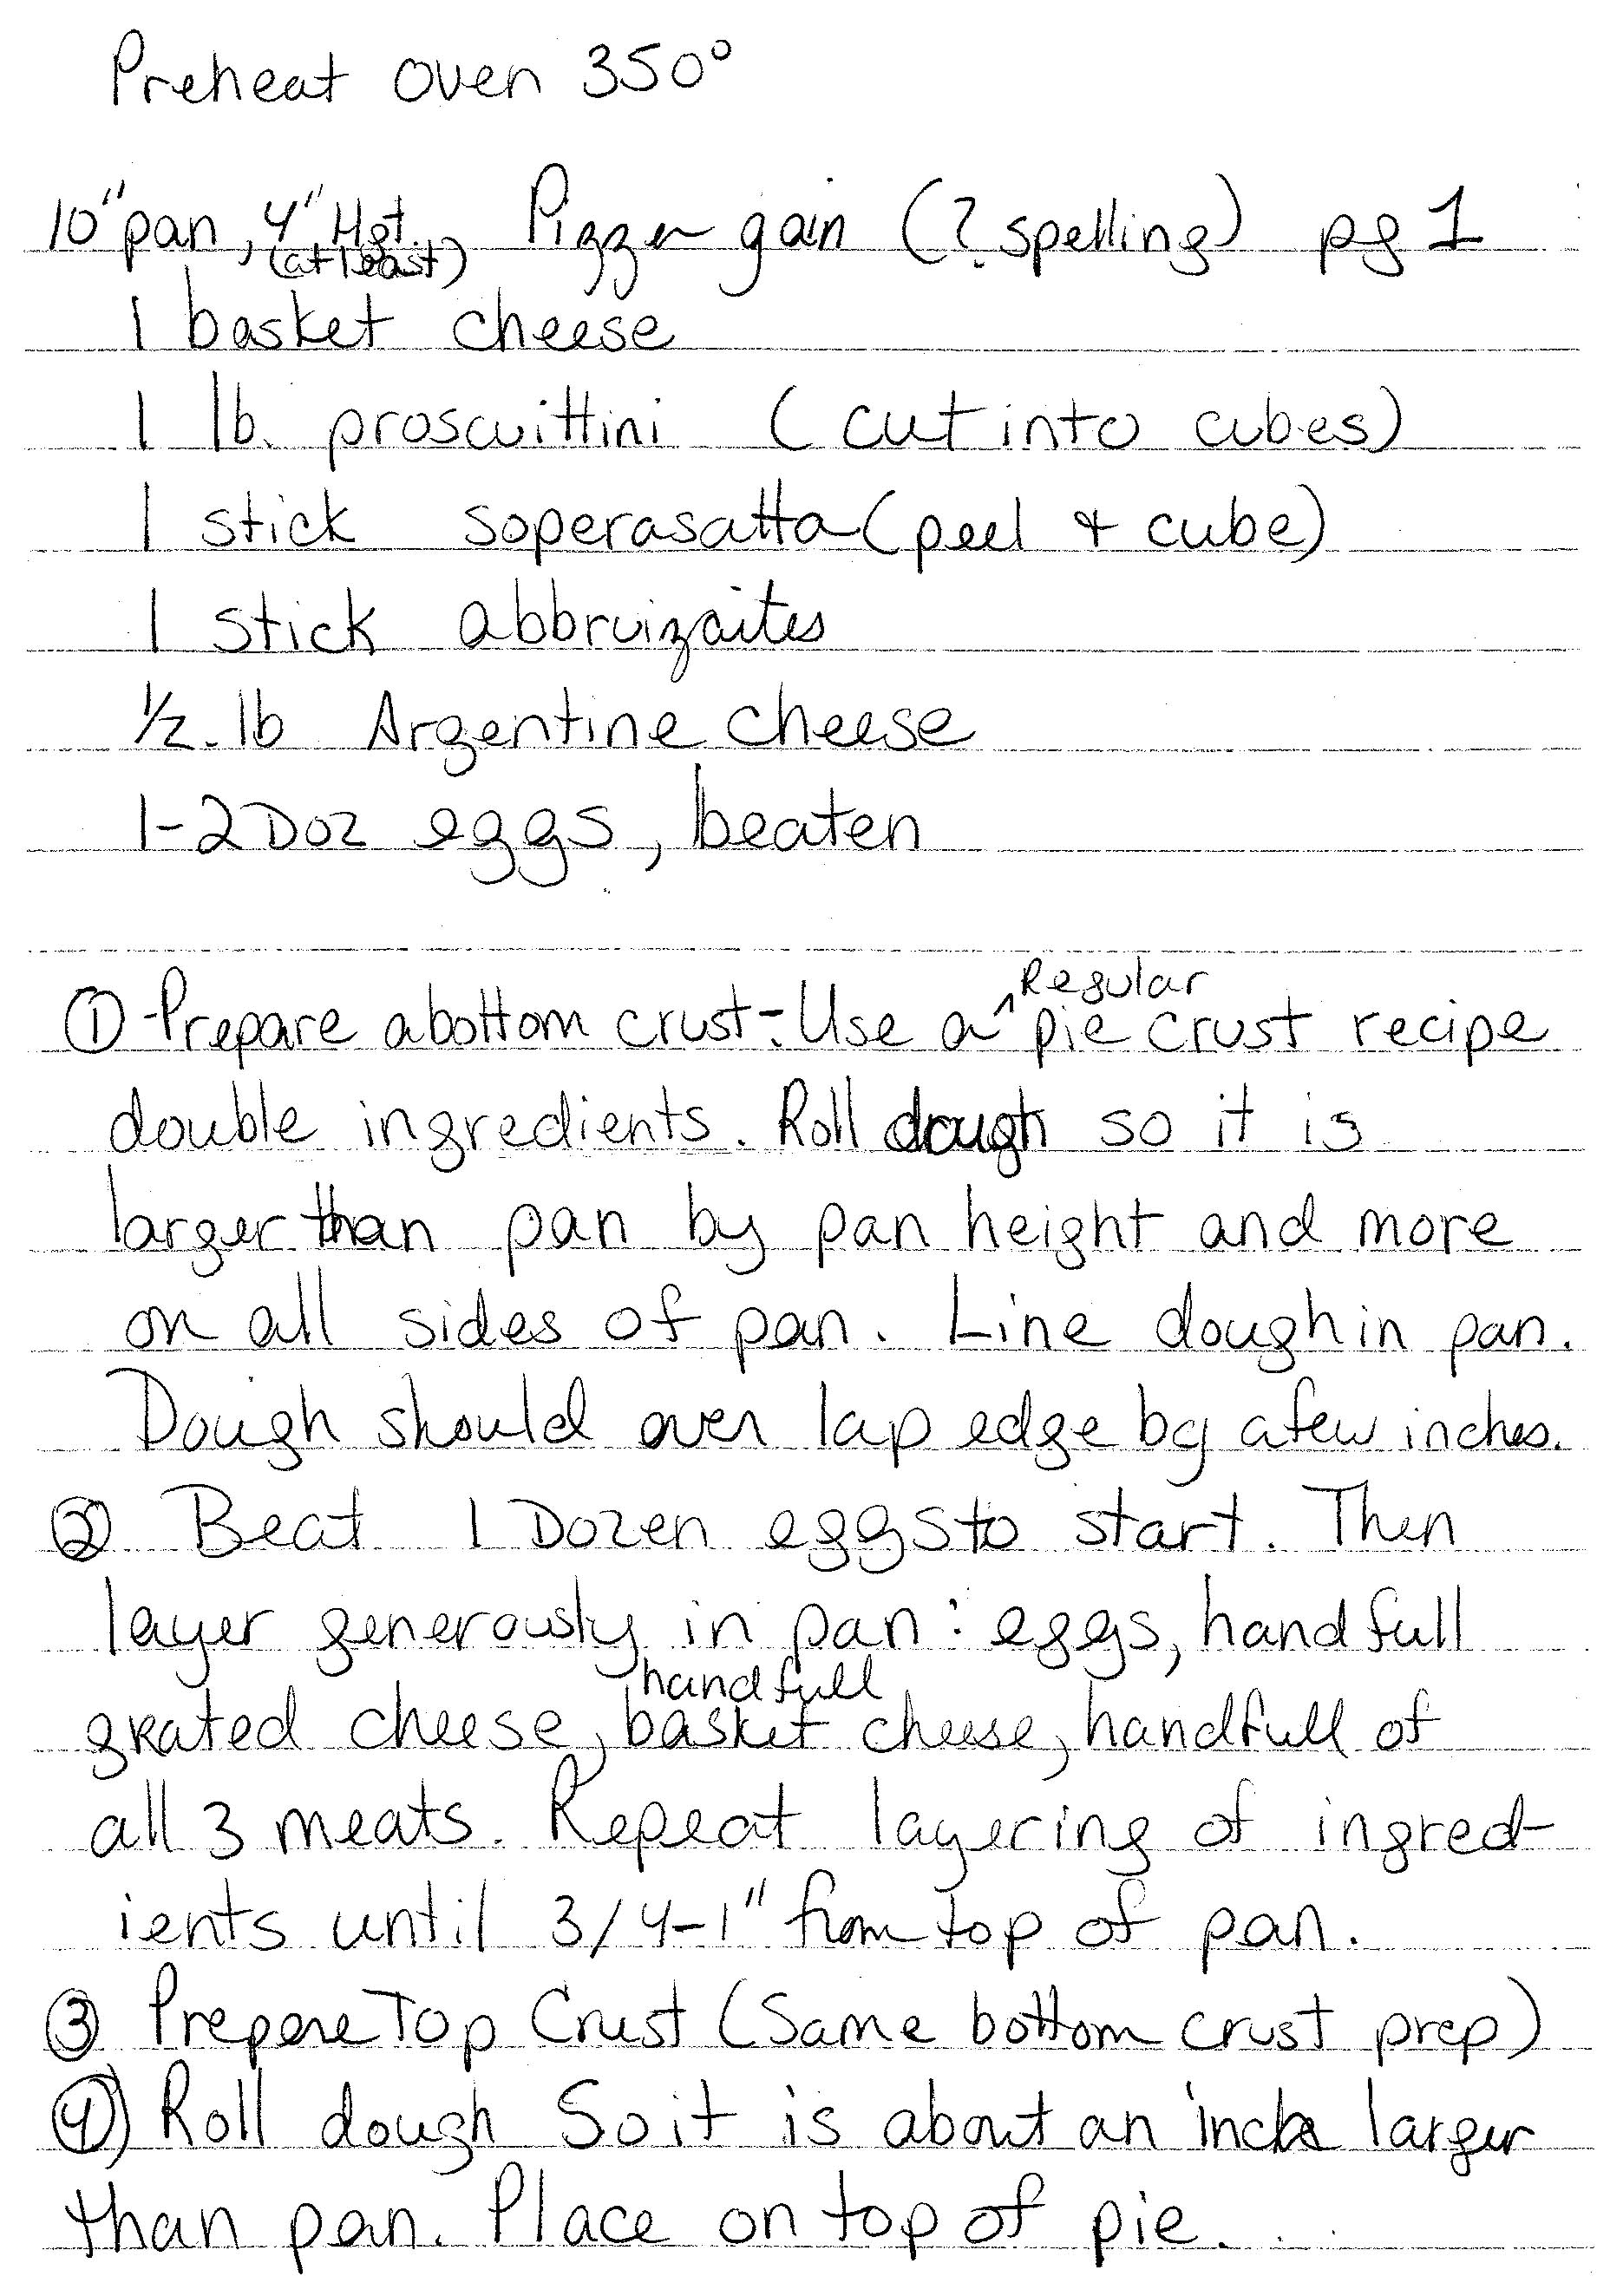 Preheat oven 350°
10" pan, 4" Hgt. Pizzergain (? spelling) pg 1
(at least)
1 basket cheese
1 lb. proscuittini (cut into cubes)
1 stick soperasatta (peel & cube)
1 stick abbruizaites
1/2 lb Argentine cheese
1-2 Doz eggs, beaten
Regular
① Prepare a bottom crust - Use a ^ pie crust recipe
double ingredients. Roll dough so it is
larger than pan by pan height and more
on all sides of pan. Line dough in pan.
Dough should over lap edge by a few inches.
② Beat 1 Dozen eggs to start. Then
layer generously in pan: eggs, handfull
handfull
grated cheese, basket cheese, handfull of
all 3 meats. Repeat layering of ingred-
ients until 3/4-1" from top of pan.
③ Prepare Top Crust (Same bottom crust prep)
④ Roll dough So it is about an inch larger
than pan. Place on top of pie.